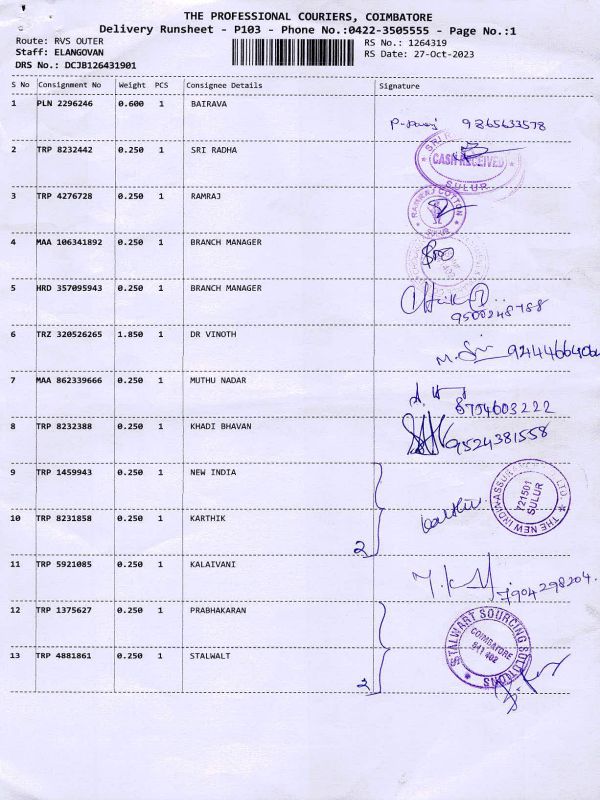 THE PROFESSIONAL COURIERS, COIMBATORE
Delivery Runsheet - P103 - Phone No.:0422-3505555 - Page No.:1
Route: RVS OUTER
RS No.: 1264319
Staff: ELANGOVAN
RS Date: 27-Oct-2023
DRS No.: DCJB126431901
S No Consignment No Weight PCS Consignee Details Signature
1 PLN 2296246 0.600 1 BAIRAVA
9865633578
2 TRP 8232442 0.250 1 SRI RADHA
CASH RECEIVED
SULUR
3 TRP 4276728 0.250 1 RAMRAJ
RAMRAJ COTTON
SULUR
4 MAA 106341892 0.250 1 BRANCH MANAGER
5 HRD 357095943 0.250 1 BRANCH MANAGER
9500248788
6 TRZ 320526265 1.850 1 DR VINOTH
7 MAA 862339666 0.250 1 MUTHU NADAR
8754603222
8 TRP 8232388 0.250 1 KHADI BHAVAN
9524381558
9 TRP 1459943 0.250 1 NEW INDIA
THE NEW INDIA ASSURANCE LTD.
721501
SULUR
10 TRP 8231858 0.250 1 KARTHIK
2
11 TRP 5921085 0.250 1 KALAIVANI
7904298204.
12 TRP 1375627 0.250 1 PRABHAKARAN
STALWART SOURCING SOLUTIONS
COIMBATORE
641 402
13 TRP 4881861 0.250 1 STALWALT
2